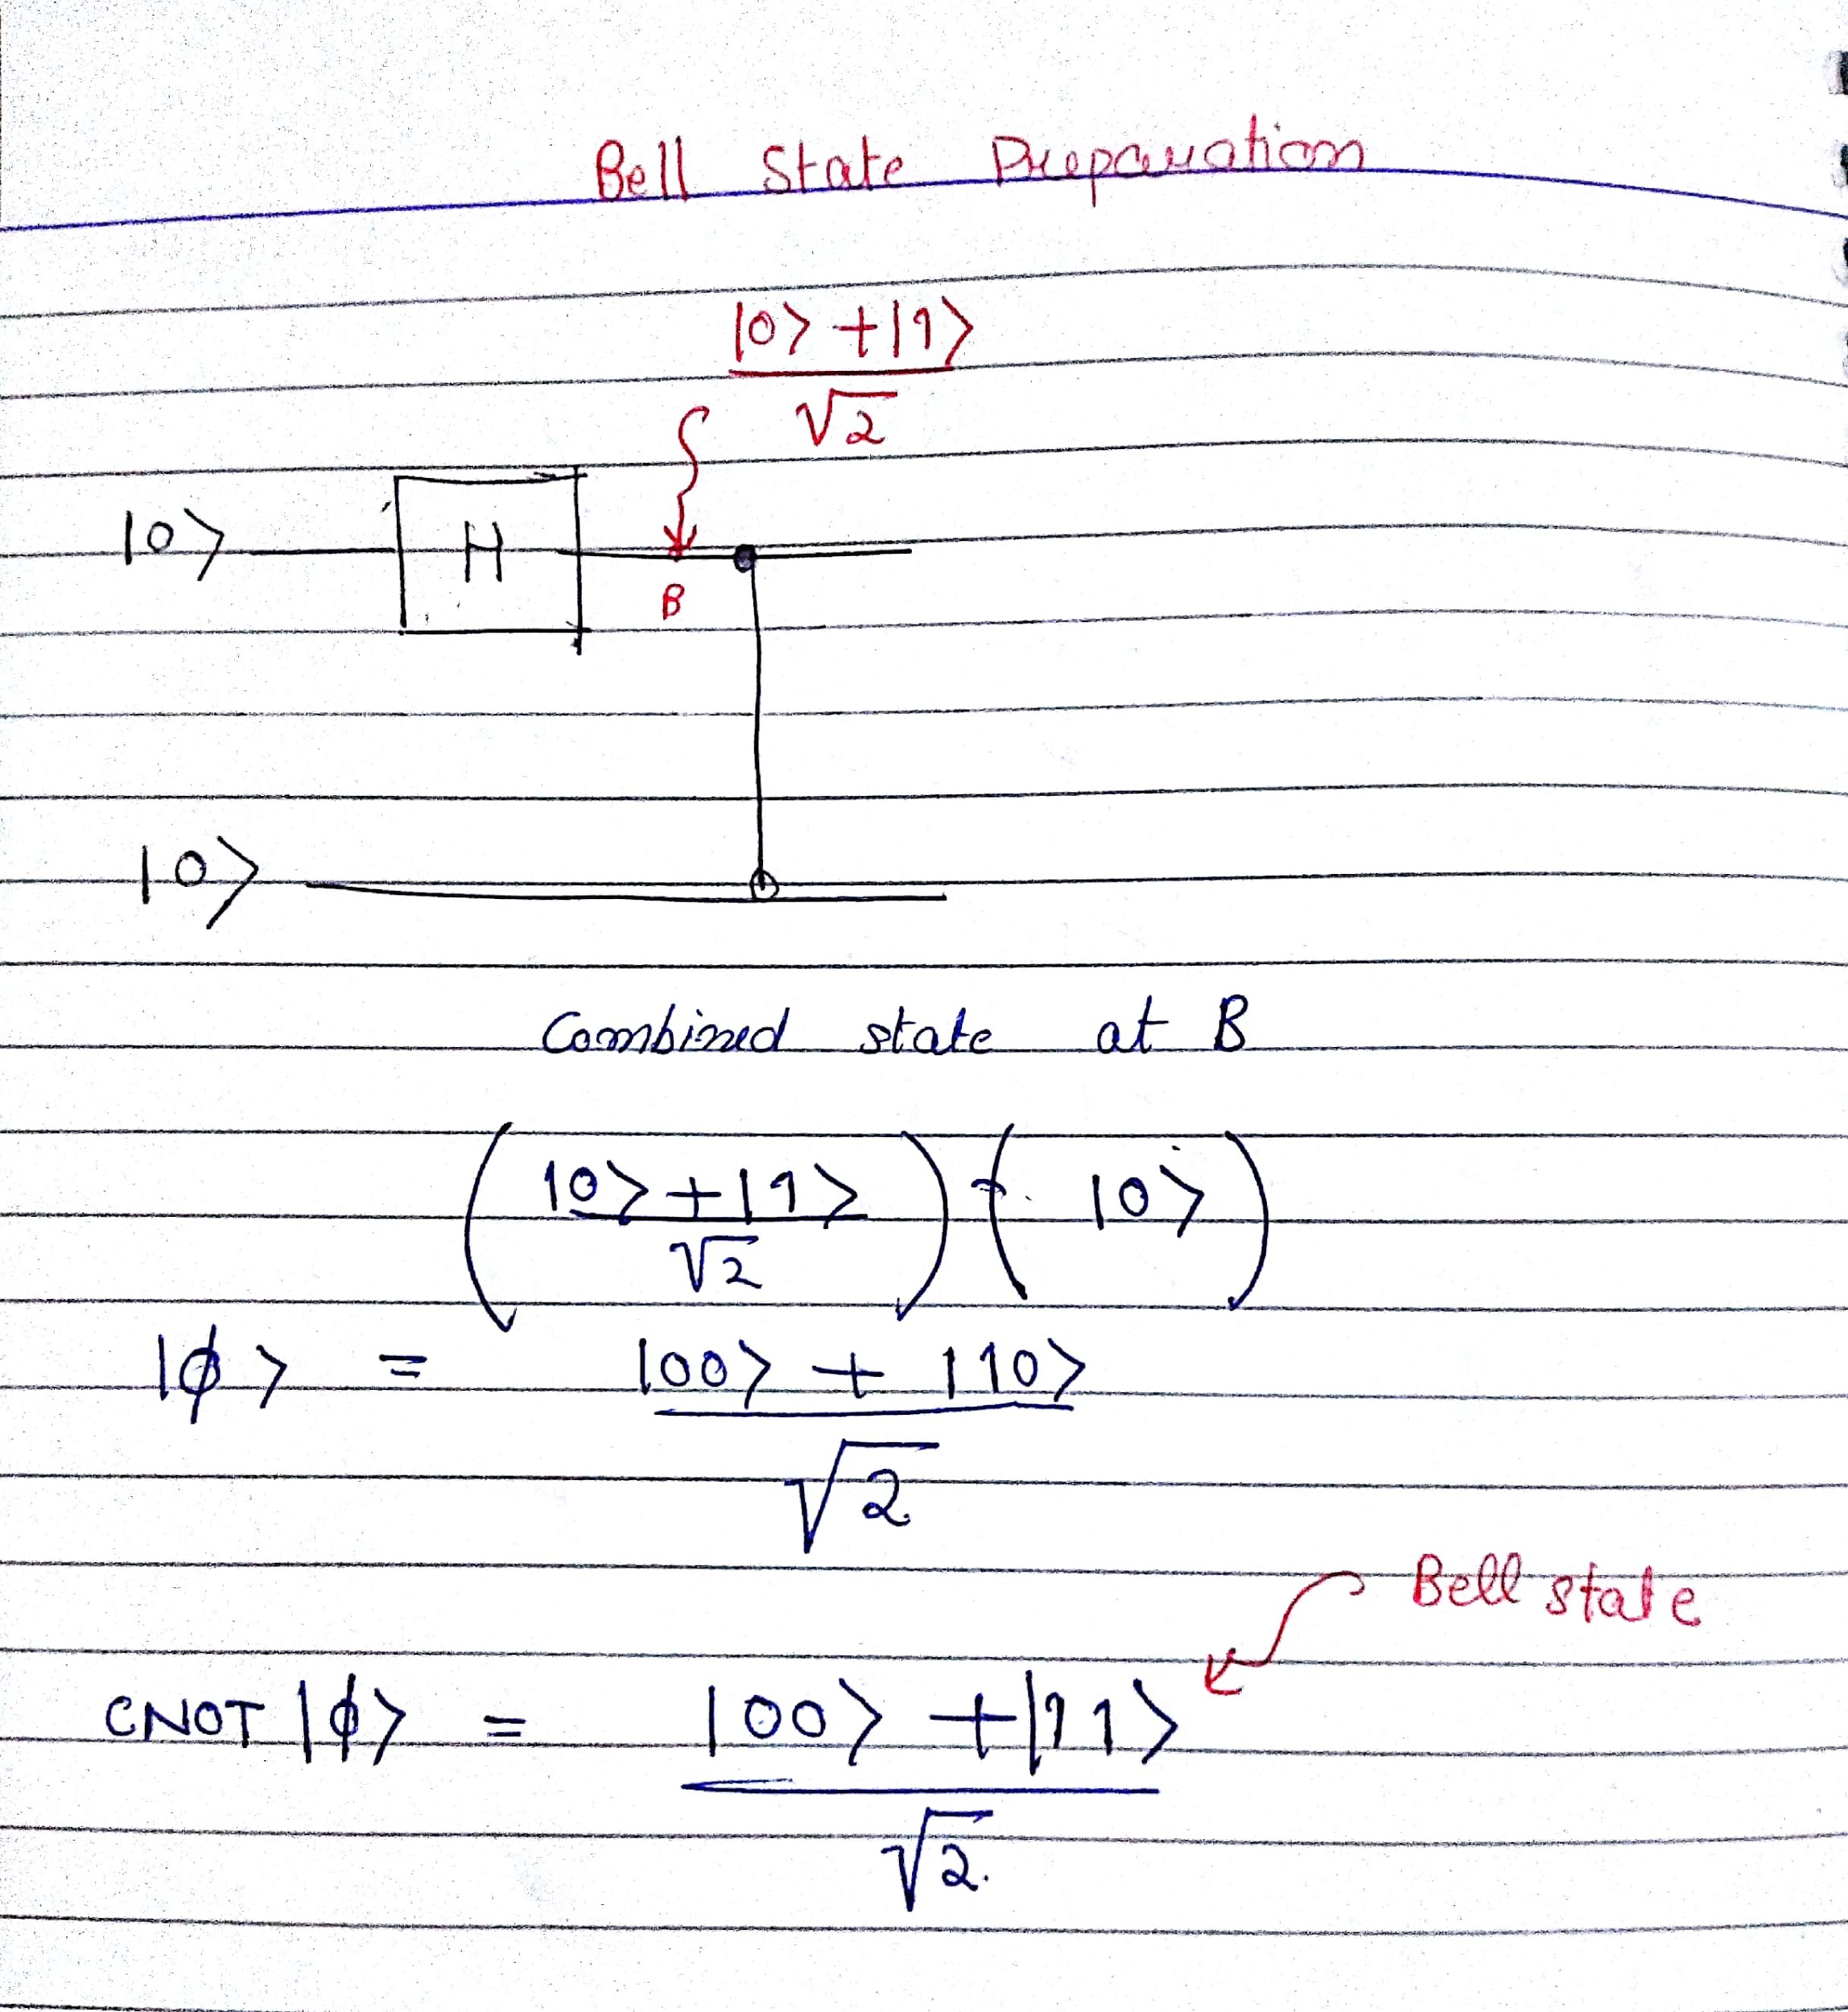 Bell State Preparation
|0> + |1>
√2
|0> H
B
|0>
Combined state at B
( |0> + |1> ) ( |0> )
√2
|ϕ> = |00> + |10>
√2
Bell state
CNOT |ϕ> = |00> + |11>
√2.